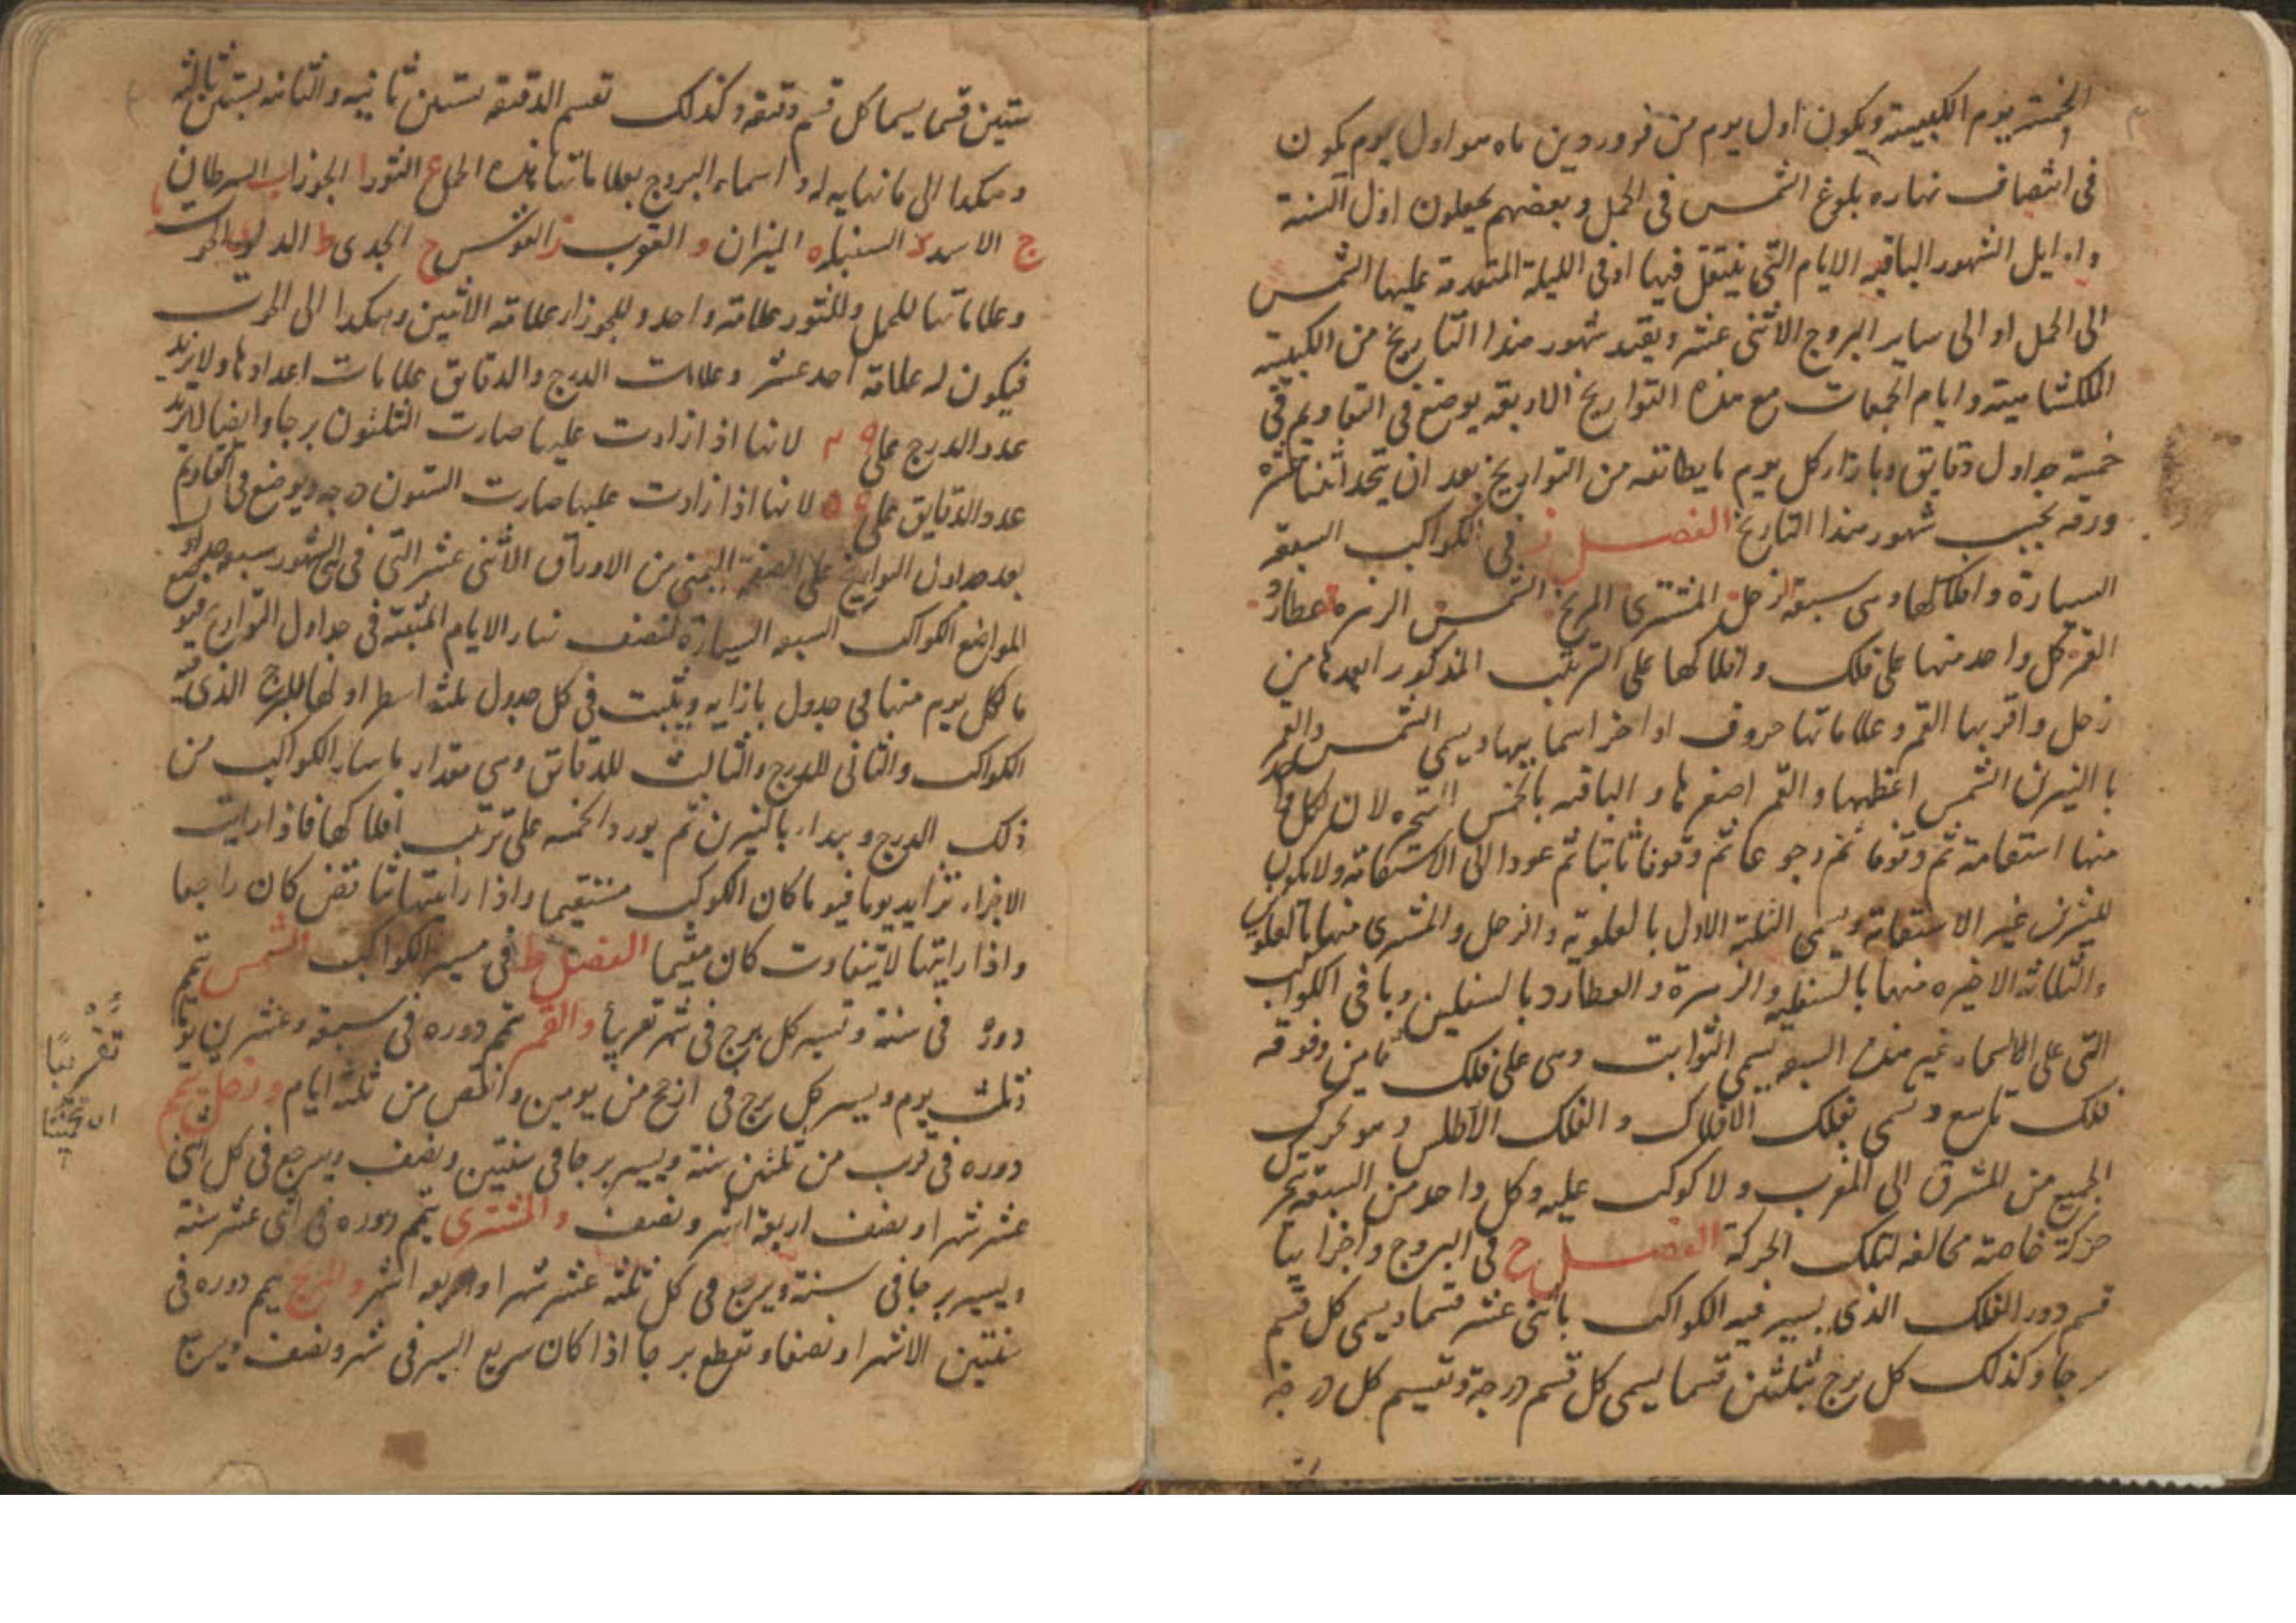 الخمسة يوم الكبيسة ويكون اول يوم من فروردين ماه هو اول يوم يكون
في انتصاف نهاره بلوغ الشمس في الحمل وبعضهم يجعلون اول السنة
واوايل الشهور الباقيه الايام التي ينتقل فيها او في الليلة المتقدمة عليها الشمس
الى الحمل او الى ساير البروج الاثنى عشر ويقيد شهور هذا التاريخ من الكبيسة
الملكشاهية وايام الجمعات مع هذه التواريخ الاربعة يوضع في التقاويم في
خمسة جداول دقايق وبازاء كل يوم ما يطابقه من التواريخ بعد ان يتخد اثنتا عشرة
ورقه بحسب شهور هذا التاريخ الفصل ز في الكواكب السبعة
السيارة وافلاكها وهي سبعة زحل المشترى المريخ الشمس الزهره عطارد
القمر كل واحد منها على فلك وافلاكها على الترتيب المذكور ابعدها من
زحل واقربها القمر وعلاماتها حروف اواخر اسماييها ويسمى الشمس والقمر
با النيرين الشمس اعظمها والقمر اصغرها والباقيه بالخمس المتحيره لان لكل واحد
منها استقامة ثم وقوفا ثم رجوعا ثم وقوفا ثانيا ثم عودا الى الاستقامة ولا يكون
للنيرين غير الاستقامة ويسمى الثلثة الاول بالعلوية والزحل والمشترى منها بالعلويين
والثلاثة الاخيره منها بالسفليه والزهرة والعطارد بالسفليين وباقي الكواكب
التي على السماء غير هذه السبعه يسمى الثوابت وهي على فلك ثامن وفوقه
فلك تاسع وتسمى بفلك الافلاك والفلك الاطلس وهو تحريك
الجميع من المشرق الى المغرب ولا كوكب عليه وكل واحد من السبعة يتحرك
حركة خاصة مخالفه لتلك الحركة الفصل ح في البروج واجزايها
قسم دور الفلك الذى يسير فيه الكواكب باثنى عشر قسما ويسمى كل قسم
برجا وكذلك كل برج بثلثين قسما يسمى كل قسم درجة وتقسيم كل درجة
ستين قسما يسما كل قسم دقيقه وكذلك تقسم الدقيقه بستين ثانيه والثانيه بستين ثالثه
وهكدا الى ما نهايه له واسماء البروج بعلاماتها هذه الحمل ع الثور ا الجوزا ب السرطان
ج الاسد د السنبله ه الميزان و العقرب ز القوس ح الجدى ط الدلو ى الحوت يا
وعلاماتها للحمل وللثور علامة واحد وللجوزاء علامة الاثنين وهكدا الى الحوت
فيكون له علامة احد عشر وعلامات الدرج والدقايق علامات اعدادها ولا يزيد
عدد الدرج على ٢٩ لانها اذا زادت عليها صارت الثلثون برجا وايضا لا يزيد
عدد الدقايق على ٥٩ لانها اذا زادت عليها صارت الستون درجه ويوضع في التقاويم
بعد جداول التواريخ على الصفحة اليمنى من الاوراق الاثنى عشر التي في الشهور سبعه جداول
لمواضع الكواكب السبعه السيارة لنصف نهار الايام المثبتة في جداول التواريخ فيوضع
ما لكل يوم منها في جدول بازايه ويثبت في كل جدول ثلثه اسطر اولها للبرج الذى فيه
الكواكب والثانى للدرج والثالث للدقايق وهي مقدار ما سار الكواكب من
ذلك الدرج ويبدا بالنيرين ثم يورد الخمسه على ترتيب افلاكها فاذا رايت
الاجزاء تتزايد يوما فيوما كان الكوكب مستقيما واذا رايتها تتناقض كان راجعا
واذا رايتها لا يتفاوت كان مقيما الفصل ط في مسير الكواكب الشمس تتمم
دوره في سنة وتسير كل برج في شهر تقريبأ والقمر يتمم دوره في سبعة وعشرين يوما
وثلث يوم ويسير كل برج في ارجح من يومين وانقص من ثلثه ايام وزحل يتمم
دوره في قرب من ثلثين سنة ويسير برجا في سنتين ونصف ويرجع في كل اثنى
عشر شهرا ونصف اربعة اشهر ونصف والمشترى يتمم دوره في اثنى عشر سنة
ويسير برجا في سنة ويرجع في كل ثلثه عشر شهرا واربعه اشهر والمريخ يتمم دوره في
سنتين الا شهرا ونصفا وتقطع برجا اذا كان سريع السير في شهر ونصف ويرجع
تقريبًا